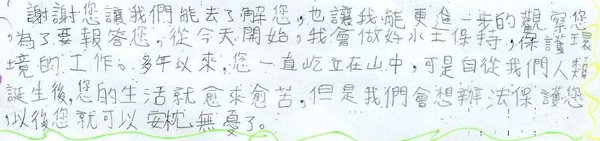 謝謝您讓我們能去了解您，也讓我能更進一步的觀察您
，為了要報答您，從今天開始，我會做好水土保持，保護環
境的工作。多年以來，您一直屹立在山中，可是自從我們人類
誕生後，您的生活就愈來愈苦，但是我們會想辦法保護您
以後您就可以安枕無憂了。